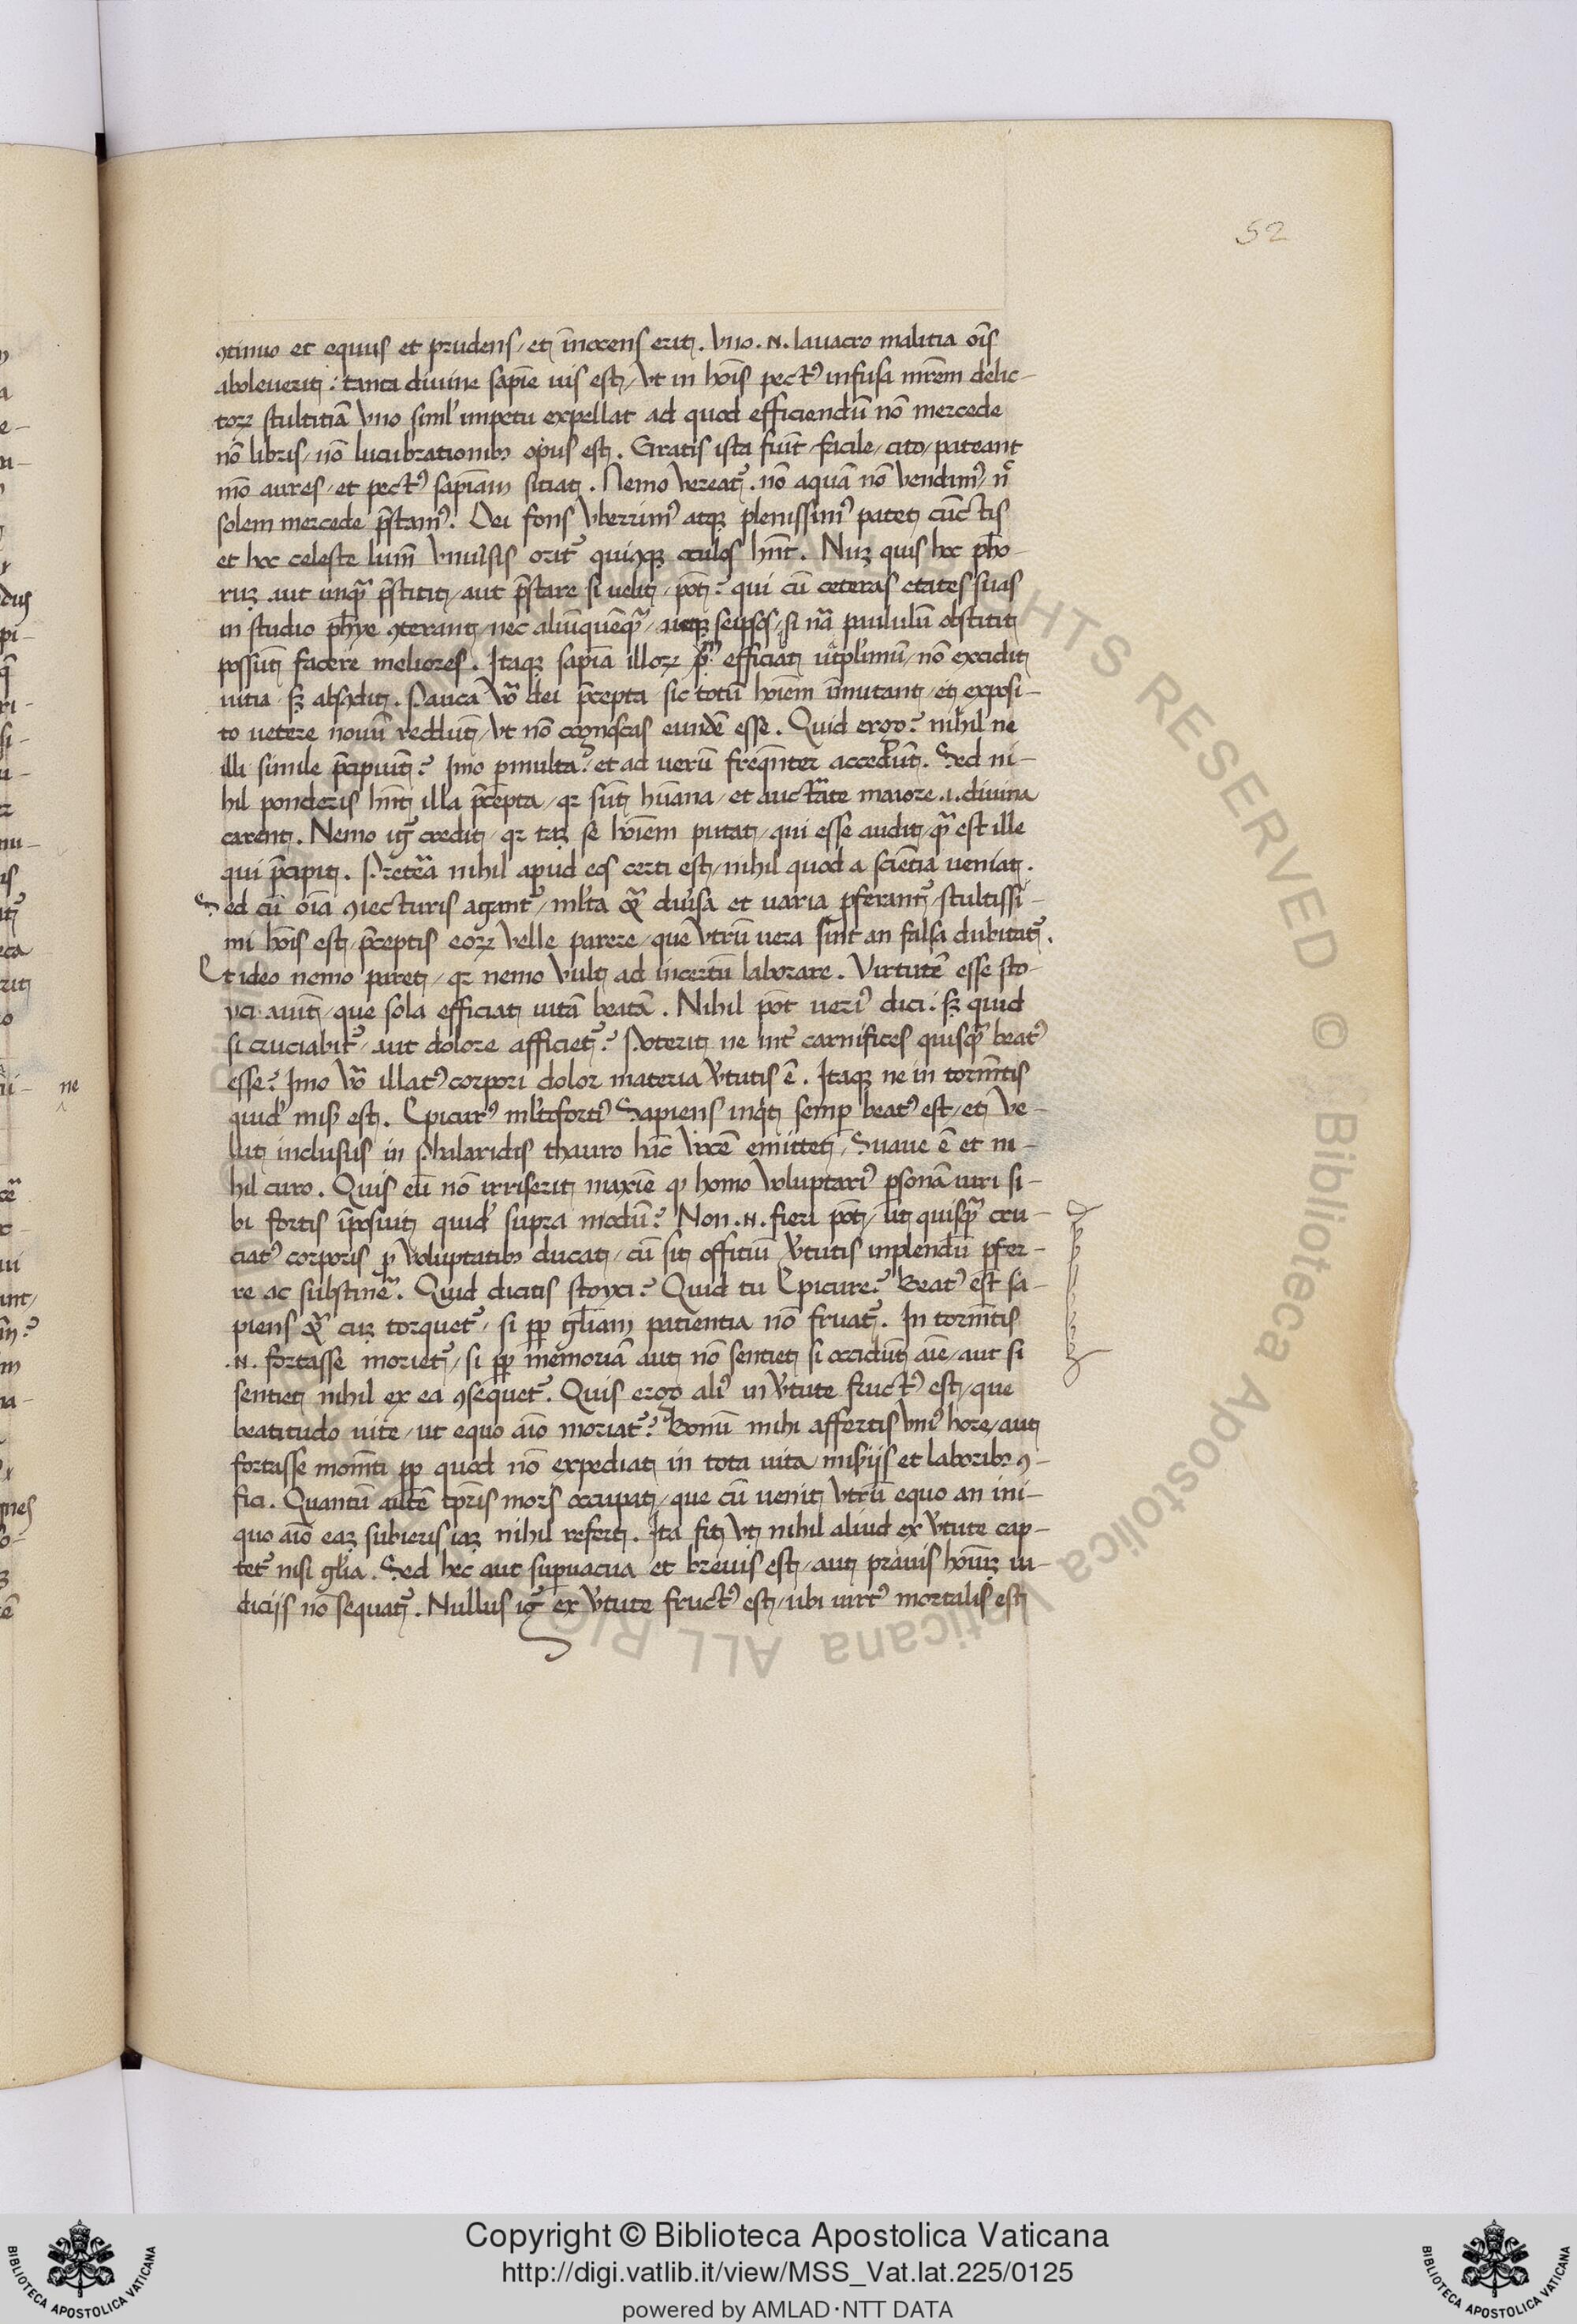 52
ꝯtinuo et equus et prudens / et īnocens erit . Vno .N. lauacro malitia oīs
aboleuerit : tanta diuine sapīe uis est / Vt in hoīs pectꝰ infusa mr̄em delic-
toꝝ stultitiā Vno siml' impetu expellat ad quod efficiendū nō mercede
nō libris / nō lucubrationibꝫ opus est . Gratis ista fiūt / facile / cito / pateant
mō aures / et pectꝰ sapīam sitiat . Nemo Vereat᷑ . nō aquā nō Vendimꝰ / n̄
solem mercede p̄stamꝰ . Dei fons Vberrimꝰ atqꝫ plenissimꝰ patet cūctis
et hoc celeste lum̄ Vniu'sis orit᷑ quicūqꝫ oculos hn̄t . Nuꝫ quis hoc pho-
ruꝫ aut unqꝫ p̄stitit / aut p̄stare si uelit / pōt ? qui cū ceteras etates suas
in studio phye ꝯterant / nec aliūquēqꝫ / neqꝫ seipsos / si nā paululū obstitit
possunt facere meliores . Itaqꝫ sapīa illoꝝ efficiat ut pl'imū / nō excidit
uitia / sꝫ absꝯdit . Pauca Vō dei p̄cepta sic totū hoīem īmutant / et exposi-
to uetere nouū reddūt / Vt nō cognoscas eundē esse . Quid ergo ? nihil ne
illi simile p̄cipiūt ? Imo ꝑmulta ? et ad uerū freqn̄ter accedūt . Sed ni-
hil ponderis hn̄t illa p̄cepta / qꝛ sūt hūana / et auctāte maiore .i. diuina
carent . Nemo ig᷑ credit / qꝛ taꝫ se hoīem putat / qui esse audit / qꝫ est ille
qui p̄cipit . Pretēa nihil apud eos certi est / nihil quod a scīentia ueniat .
Sed cū oīa ꝯiecturis agant᷑ / ml'ta qꝫ diu'sa et uaria ꝓferant᷑ / stultissi-
mi hoīs est / p̄ceptis eoꝝ Velle parere / que Vtrū uera sint an falsa dubitat᷑ .
Et ideo nemo paret / qꝛ nemo Vult ad incertū laborare . Virtutē esse sto-
yci aiūt / que sola efficiat uitā beatā . Nihil pōt ueriꝰ dici . sꝫ quid
si cruciabit᷑ / aut dolore afficiet᷑ ? Poterit ne int᷑ carnifices quisqꝫ beatꝰ
esse ? Imo Vō illatꝰ corpori dolor materia V'tutis ē . Itaqꝫ ne in torm̄tis
quid' mis' est . Epicurꝰ ml'to fortiꝰ Sapiens inqt semꝑ beatꝰ est / et Ve-
lut inclusus in Phalaridis thauro hāc Vocē emittet / Suaue ē et ni-
hil curo . Quis eū nō irriserit maxīe ꝙ homo Voluptariꝰ ꝑsonā uiri si-
bi fortis īposuit quid' supra modū ? Non .N. fieri pōt / ut quisqꝫ cru-
ciatꝰ corporis ꝓ Voluptatibꝫ ducat / cū sit offitiū V'tutis inplendū ꝑfer-
re ac substinē . Quid dicitis stoyci ? Quid tu Epicure ? Beatꝰ est sa-
piens qꝫ cuꝫ torquet᷑ / si ꝓp gl'iam patientia nō fruat᷑ . In torm̄tis
.N. fortasse moriet᷑ / si ꝓp memoriā aut nō sentiet si occidūt aīe / aut si
sentiet nihil ex ea ꝯsequet᷑ . Quis ergo aliꝰ in V'tute fructꝰ est / que
beatitudo uite / ut equo aīo moriat᷑ ? Bonū mihi affertis Vniꝰ hore / aut
fortasse mom̄ti ꝓp quod nō expediat in tota uita mis'ijs et laboribꝫ ꝯ-
fici . Quantū autē tp̄ris mors occupat / que cū uenit Vtrū equo an ini-
quo aīo eaꝫ subieris iaꝫ nihil refert . Ita fit Vt nihil aliud ex V'tute cap-
tet᷑ nisi gl'ia . Sed hec aut suꝑuacua et breuis est / aut prauis hoīuꝫ iu-
dicijs nō sequat᷑ . Nullus ig᷑ ex V'tute fructꝰ est / ubi uirtꝰ mortalis est
ne
Copyright © Biblioteca Apostolica Vaticana
http://digi.vatlib.it/view/MSS_Vat.lat.225/0125
powered by AMLAD·NTT DATA